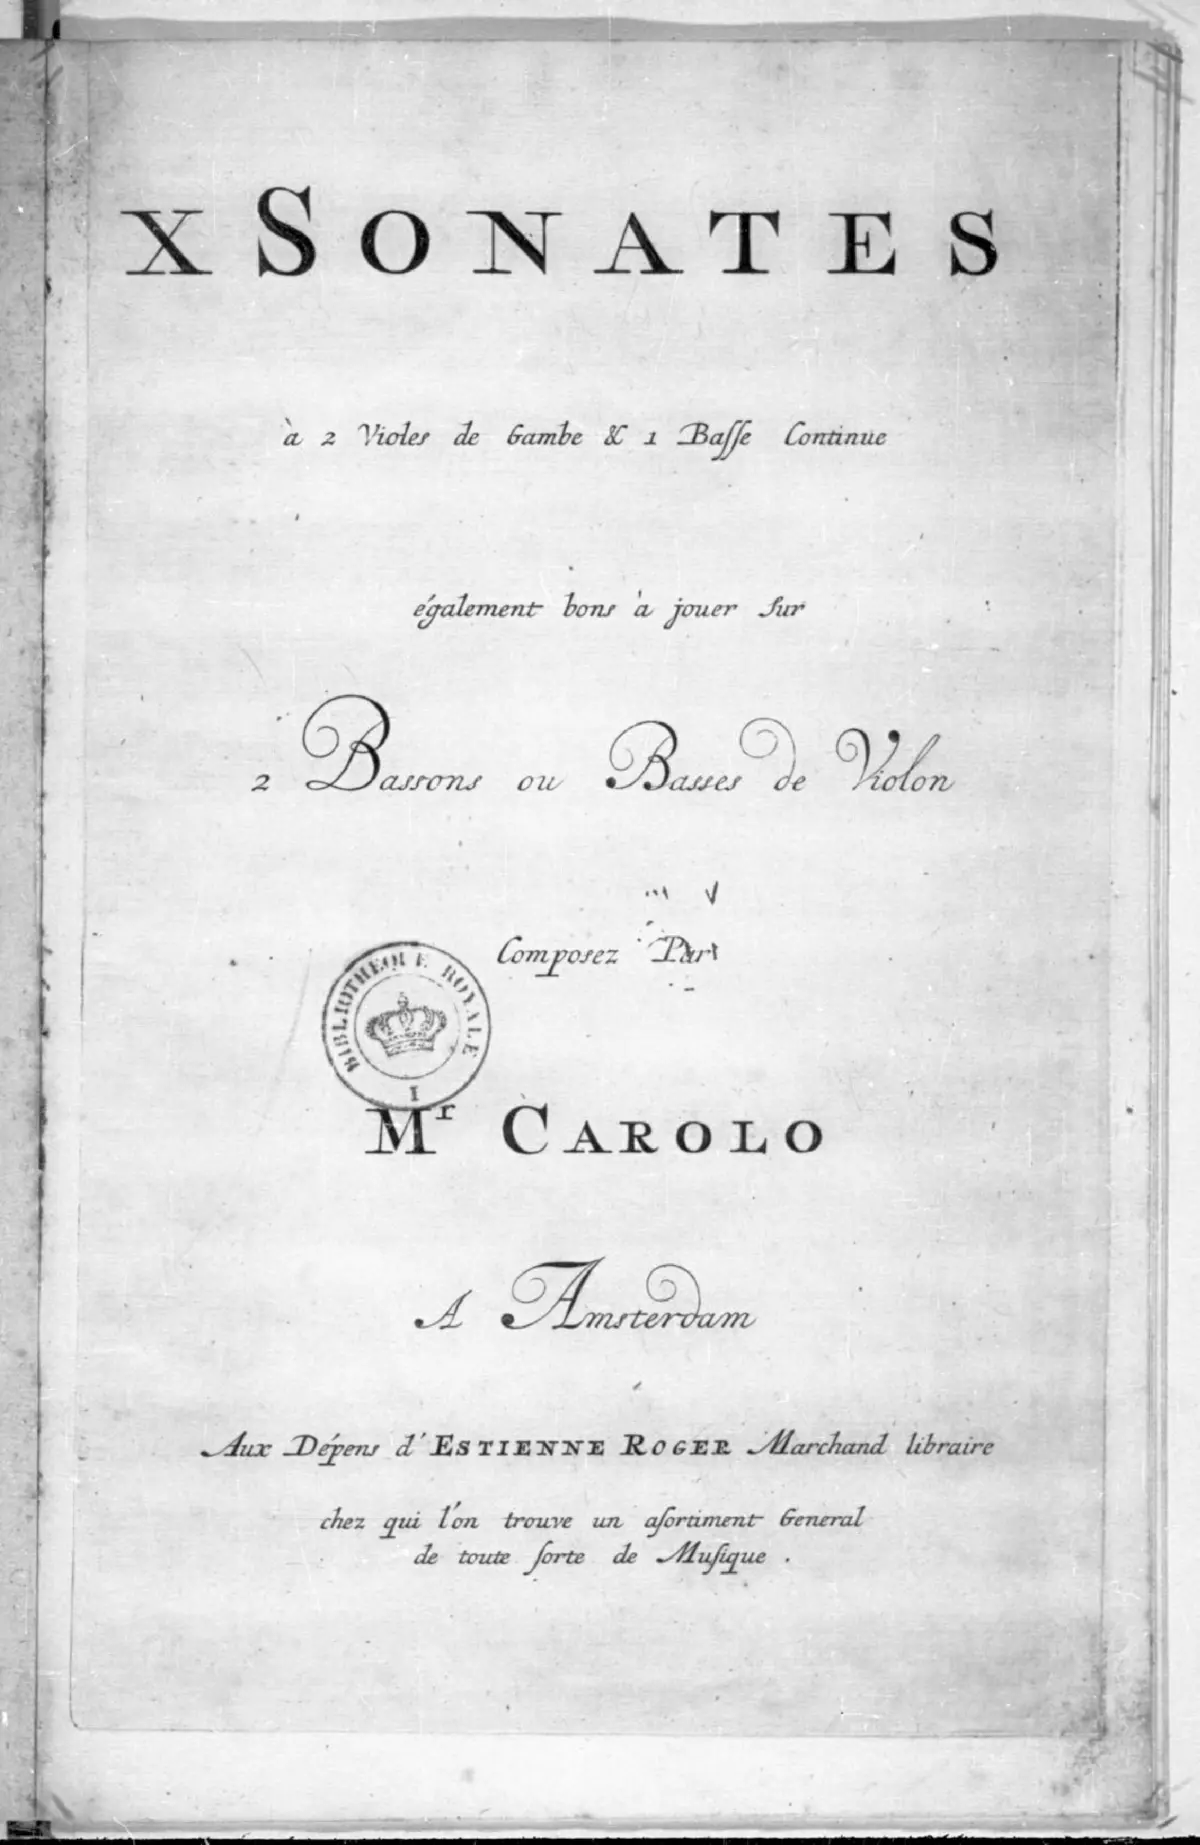 X SONATES
à 2 Violes de Gambe & 1 Baſſe Continue
également bons à jouer ſur
2 Bassons ou Basses de Violon
Composez Par
BIBLIOTHEQUE ROYALE
I
Mr CAROLO
A Amsterdam
Aux Dépens d'ESTIENNE ROGER Marchand libraire
chez qui l'on trouve un aſortiment General
de toute ſorte de Muſique .